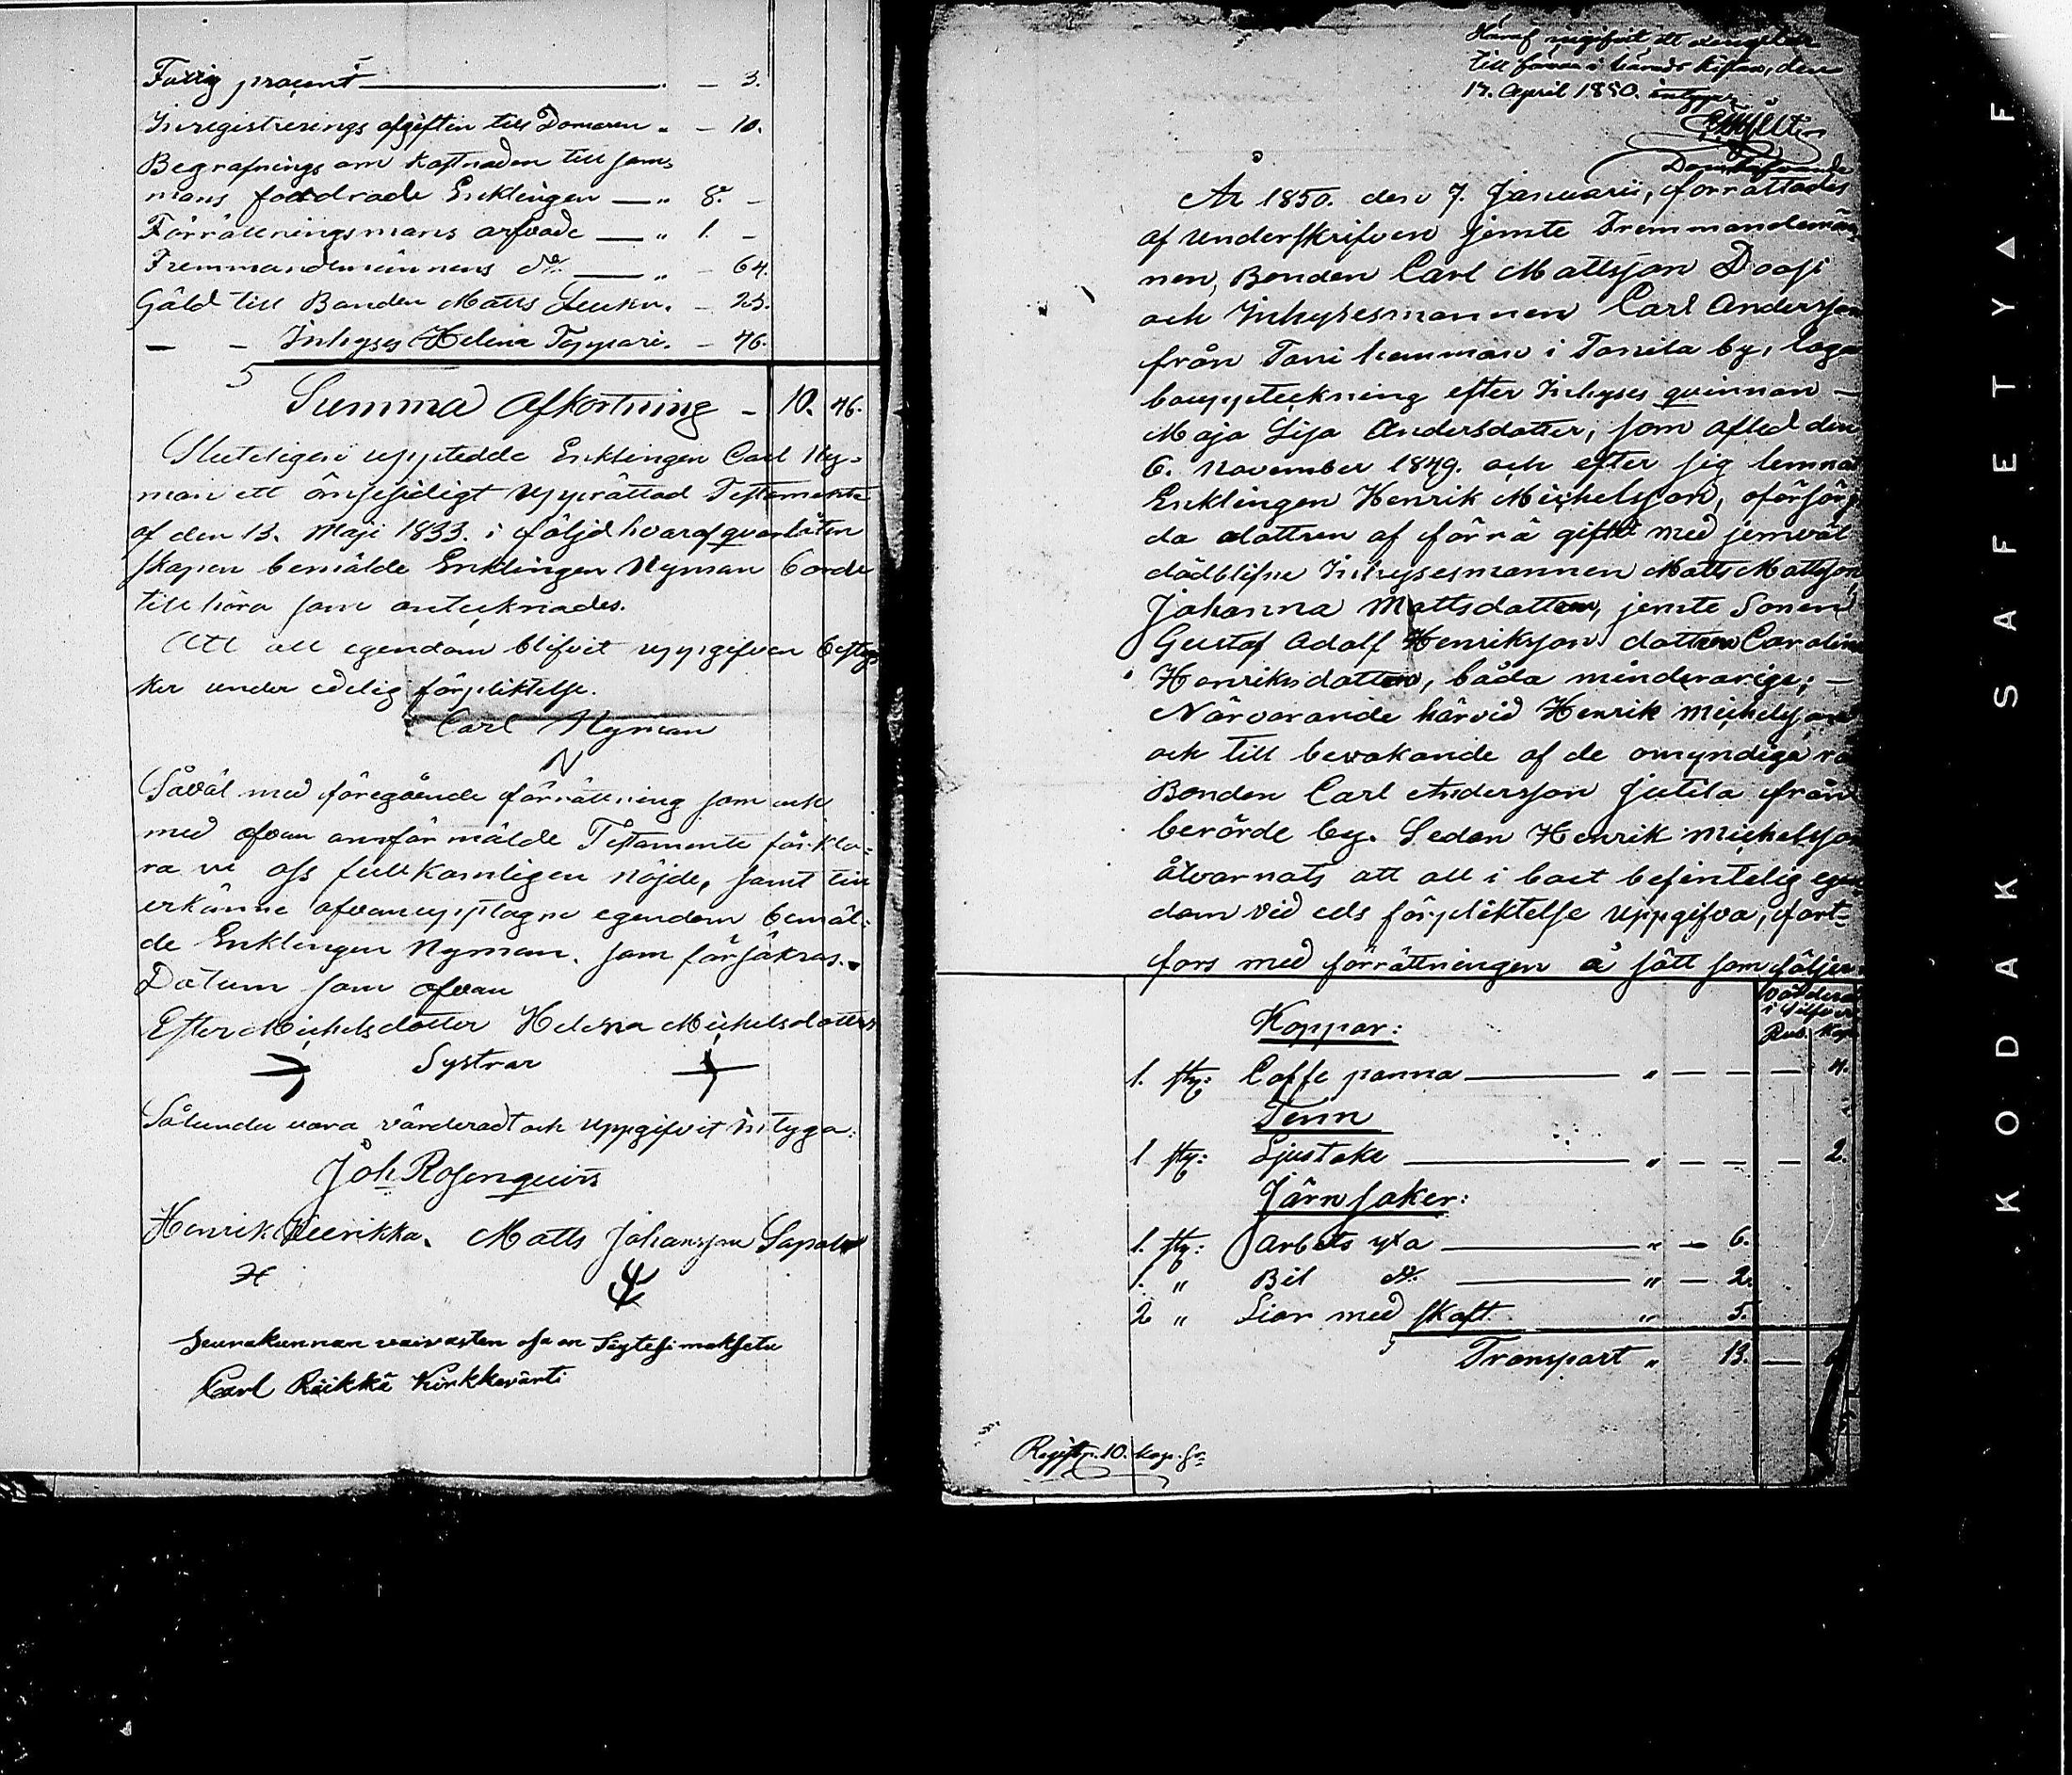 Fattig procent — 3.
Inregistrerings afgiften till Domaren „ — 10.
Begrafnings om kostnaden till sam=
mans fordrade Enklingen — „ 8. —
Förrättningsmans arfvode — „ 1. —
Fremmandemännens do — „ — 64.
Gäld till Bonden Matts — 25.
— — Inhyses Helena — 46.
Summa Afkortning — 10. 46.
Sluteligen uppteddde Enklingen Carl Ny=
man ett önsesidigt upprättad Testamente
af den 13. Maji 1833. i följd hvaraf qvarlåten
skapen bemälde Enklingen Nyman borde
tillhöra som antecknades.
Att all egendom blifvit uppgifven bestyr
ker under edelig förpliktelse.
Carl Nyman
N
Såväl med föregående förrättning som och
med ofvan anförmälde Testamente förkla=
ra vi oss fullkomligen nöjde, samt till
erkänne ofvanupptagne egendom bemäl=
de Enklingen Nyman. som försäkras.
Datum som ofvan
Ester Michelsdotter Helena Michelsdotter
Systrar
Sålunda vara värderadt och uppgifvit intyga:
Joh. Rosenqvist
Henrik Matts Johansson
H
Seurakunnan vaivasten osa on Täytesi maksetu
Carl Räikkä Kirkkovärti
till häradskistan, den
17. April 1850. intygar
Domhafvande
År 1850. den 7. Januarii, förrättades
af Underskrifven jemte Fremmandemän
nen, Bonden Carl Mattsson Doosi
och Inhysesmannen Carl Andersson
från Tani hemman i Tanila by, laga
bouppteckning efter Inhyses qvinnan —
Maja Lisa Andersdotter, som afled den
6. November 1849. och efter sig lemnat
Enklingen Henrik Michelsson, oförsörg
da dottren af förra giftet med jemväl
dödblifne Inhysesmannen Matts Mattsson
Johanna Mattsdotter, jemte Sonen
Gustaf Adolf Henriksson dottren Carolina
Henriksdotter, båda minderarige; —
Närvarande härvid Henrik Michelsson
och till bevakande af de omyndiga rä
Bonden Carl Andersson Jutila från
berörde by. Sedan Henrik Michelsson
åtvarnats att all i boet befintelig egen
dom vid eds förpliktelse uppgifva, fort=
fors med förrättningen å sätt som följer
Värderat
i Silfver
Rub. Kop
Koppar:
1. sty: Caffe panna — „ — — — 4.
Tenn
1 sty: Ljustake — „ — — — 2.
Järnsaker:
1. sty: Arbets yxa — „ — 6.
1. „ Bil do. — „ — 2.
2 „ Liar med skaft. „ 5.
Transport „ 13. — 6
Registr. 10. kop. Sr
KODAK SAFETY ▲ F